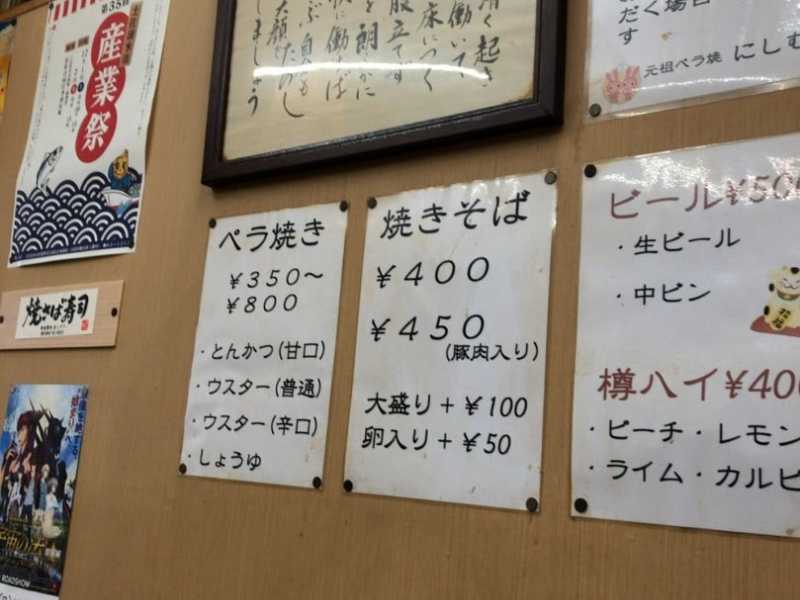 第35回
産業祭
焼さば寿司
ROADSHOW
清く起き
働いて
床につく
服立てです
を朗かに
に働けば
ぶ自も
大顔たのし
しましょう
だく場合
す
元祖ベラ焼 にしむ
ベラ焼き
￥３５０～
￥８００
・とんかつ(甘口)
・ウスター(普通)
・ウスター(辛口)
・しょうゆ
焼きそば
￥４００
￥４５０
(豚肉入り)
大盛り＋￥100
卵入り＋￥50
ビール￥500
・生ビール
・中ビン
樽ハイ￥400
・ピーチ・レモン
・ライム・カルピ